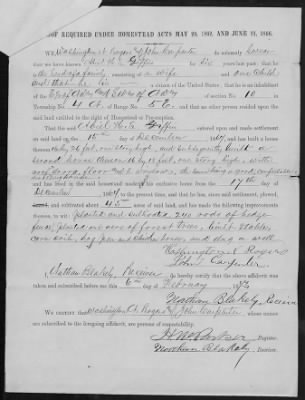 PROOF REQUIRED UNDER HOMESTEAD ACTS MAY 20, 1862, AND JUNE 21, 1866.
We, Washington A Rogers & John Carpenter do solemnly swear
that we have known Giffin for five years last past; that he
is the head of a family, consisting of a wife and one Child
and that he is a citizen of the United States; that he is
of section No. 10 in
Township No. 4 of Range No. 5 E, and that no other person resided upon the said
land entitled to the right of Homestead or Pre-emption.
That the said Giffin entered upon and made
settlement on said land on the 15th day of December, 1867, and has built a house
thereon
second house thereon 16 by 18 feet, one story high, with
door, floor and windows,
and has lived in the said homestead and made it his exclusive home from the 17th day of
December, 1867, to the present time, and that he has, since said settlement, plowed,
and cultivated about 45 acres of said land, and has made the following improvements
thereon, to wit: planted and cultivated 240 rods of hedge
fence, planted acres of forest trees, built stables,
corn crib, hog pen and chicken house, and dug a well
Washington A Rogers
John Carpenter
I, Nathan Blakely, Receiver do hereby certify that the above affidavit was
taken and subscribed before me this 6th day of February 1873
Nathan Blakely, Receiver
We certify that Washington A. Rogers & John Carpenter whose names
are subscribed to the foregoing affidavit, are persons of respectability.
Register.
Nathan Blakely, Receiver.